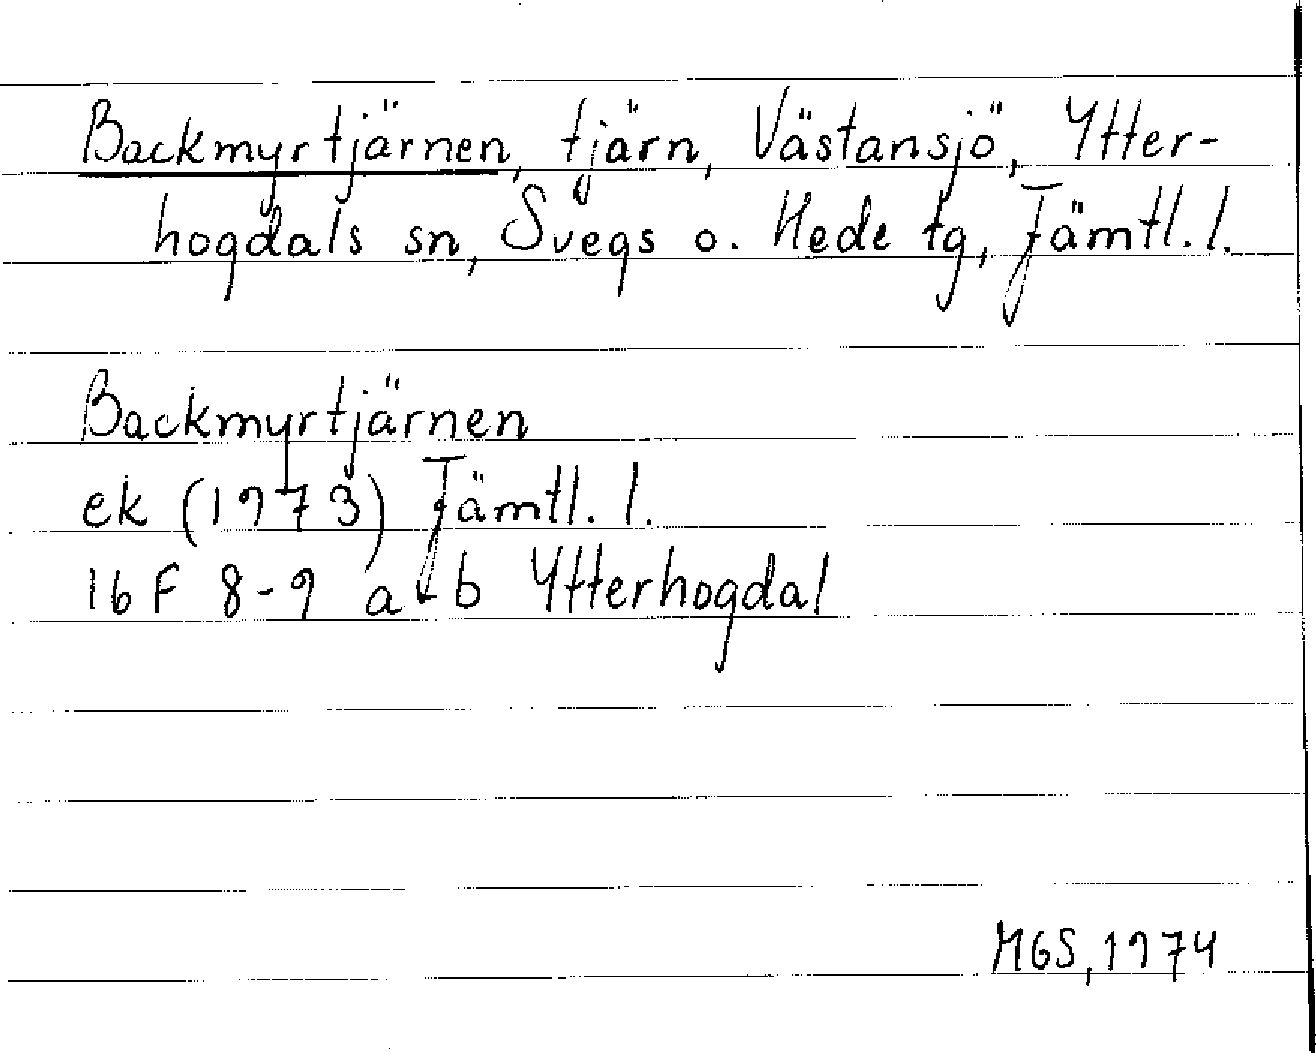 Backmyrtjärnen, tjärn, Västansjö, Ytter-
hogdals sn, Svegs o. Hede tg, Jämtl. l.
Backmyrtjärnen
ek (1973) Jämtl. l.
16F 8-9 a-b Ytterhogdal
MGS, 1974